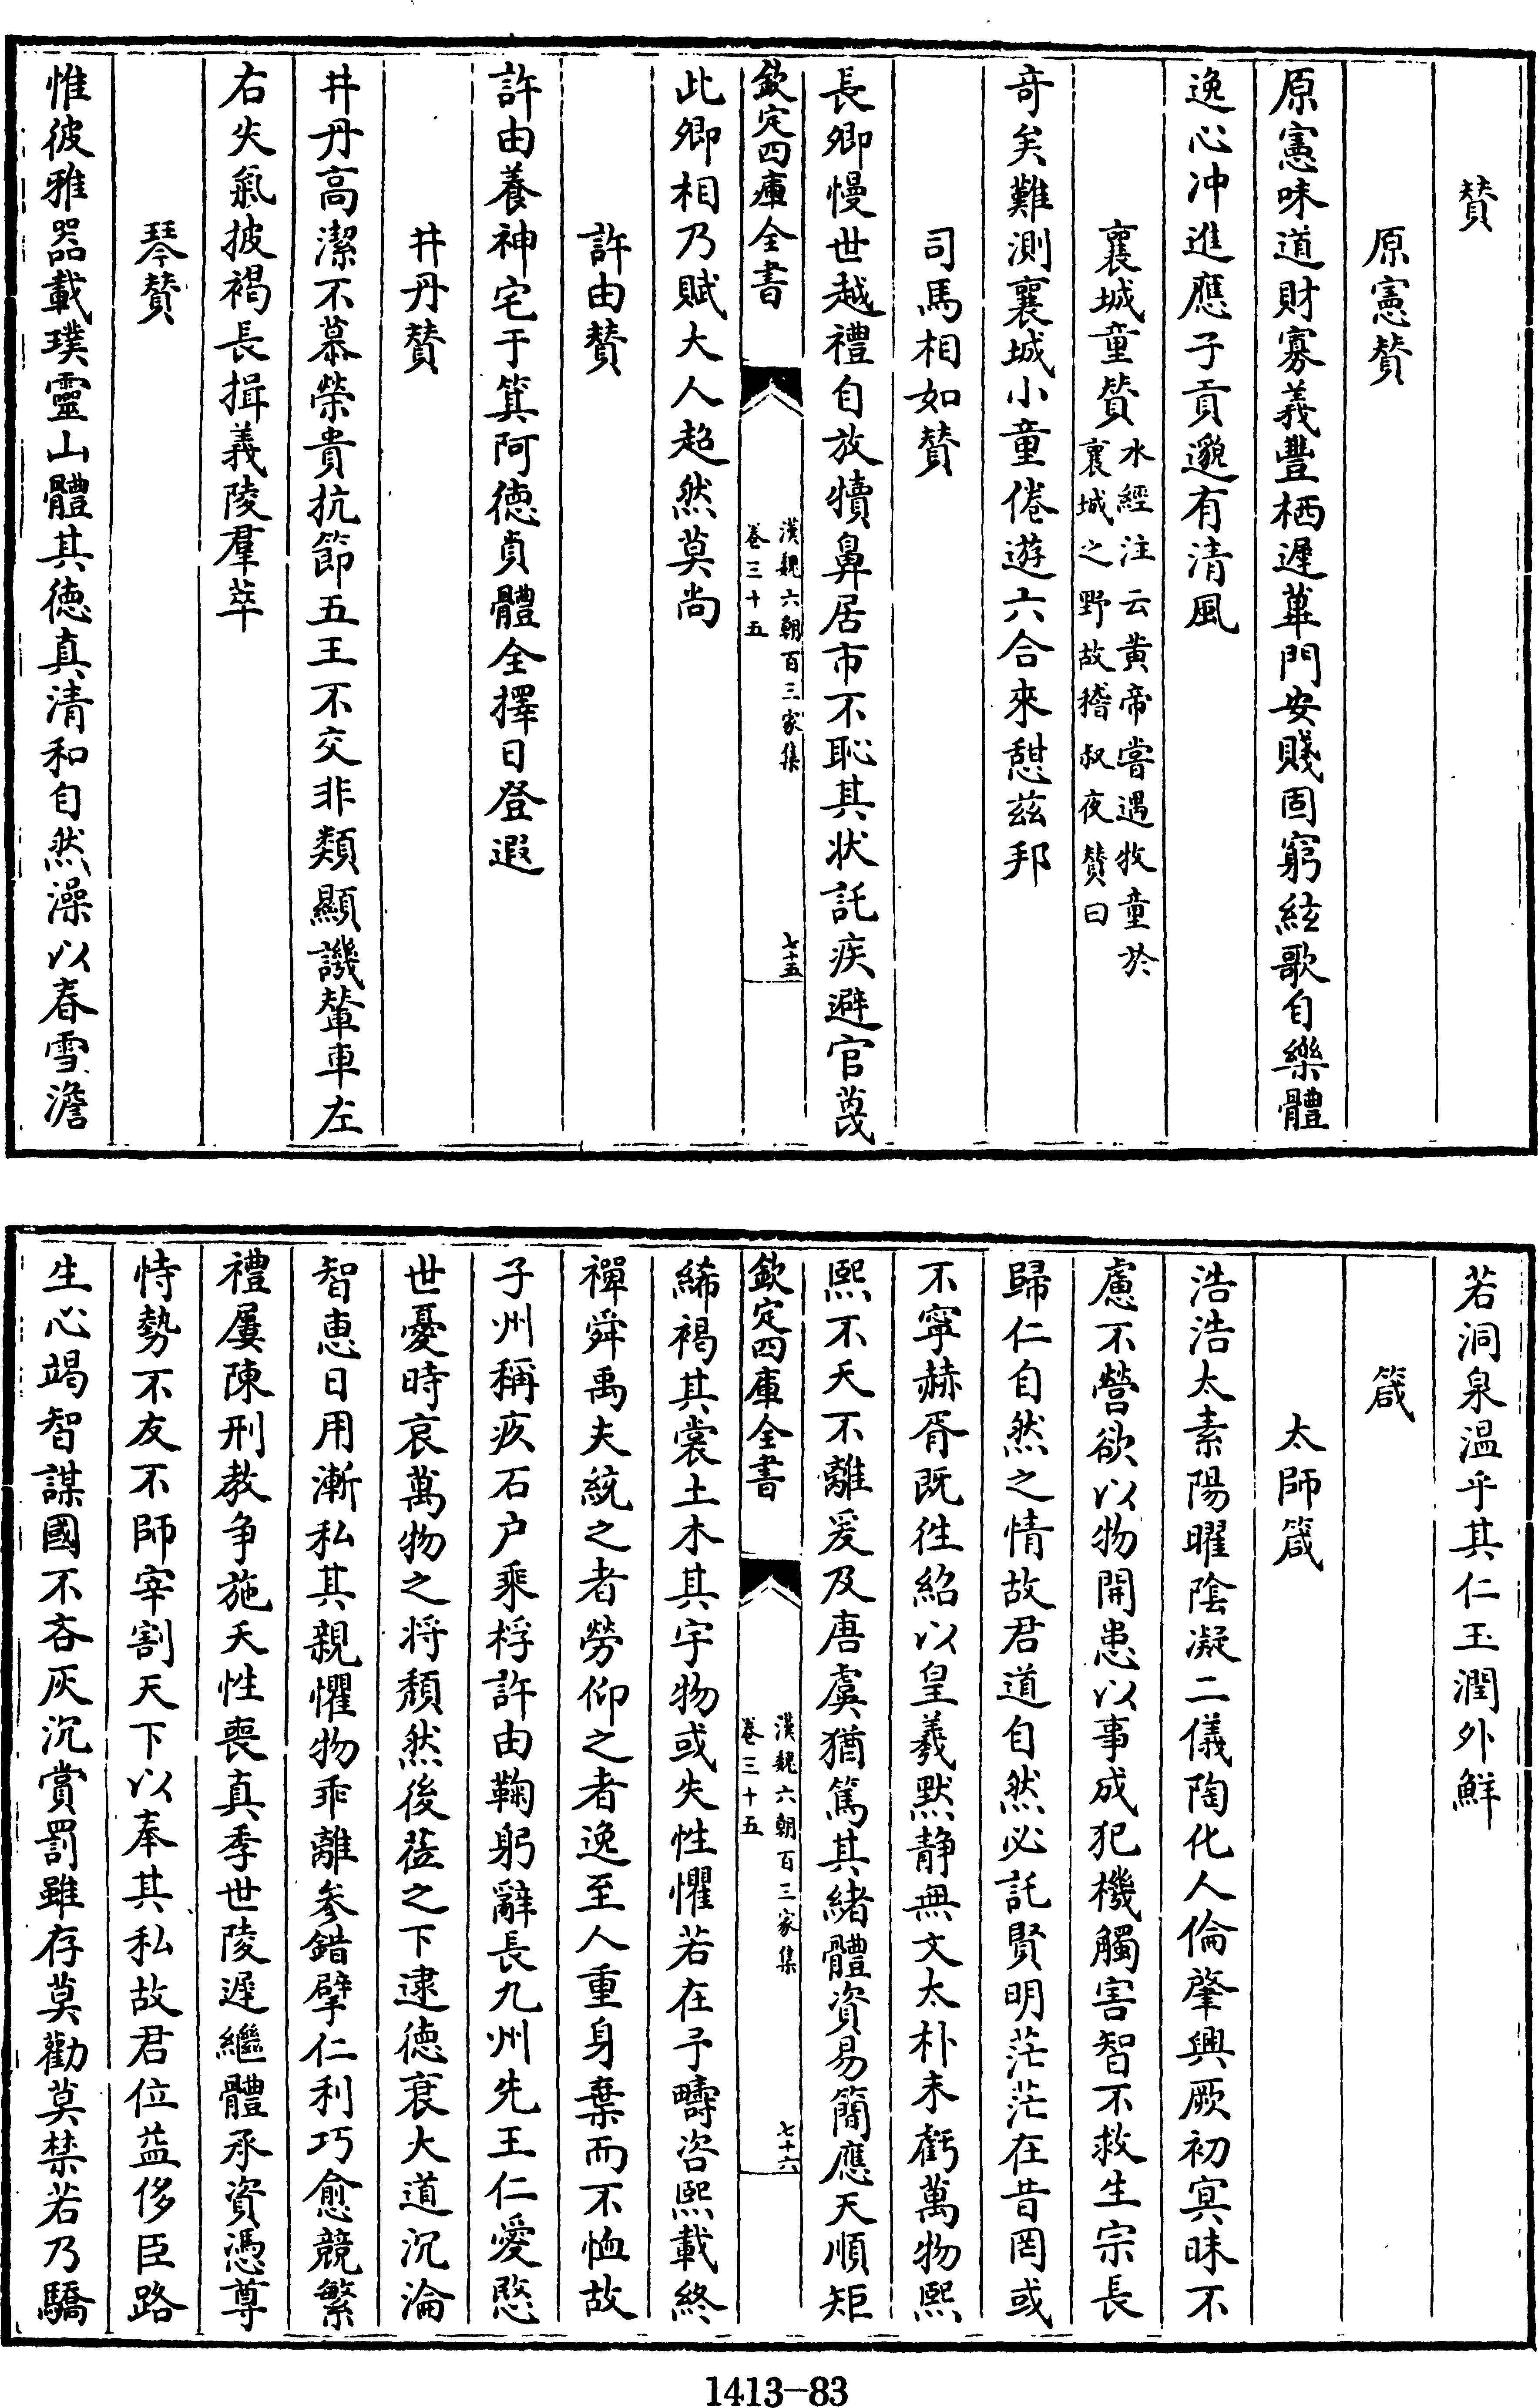 贊
原憲贊
原憲味道財寡義豐栖遲蓽門安賤固窮絃歌自樂體
逸心冲進應子貢邈有清風
襄城童贊水經注云黄帝嘗遇牧童於
襄城之野故嵇叔夜贊曰
奇矣難測襄城小童倦遊六合來憇兹邦
司馬相如贊
長卿慢世越禮自放犢鼻居市不恥其状託疾避官蔑
欽定四庫全書
漢魏六朝百三家集
卷三十五
七十五
此卿相乃賦大人超然莫尚
許由贊
許由養神宅于箕阿德貞體全擇日登遐
井丹贊
井丹高潔不慕榮貴抗節五王不交非類顯譏輦車左
右失氣披褐長揖義陵羣萃
琴贊
惟彼雅器載璞靈山體其德真清和自然澡以春雪澹
若洞泉温乎其仁玉潤外鮮
箴
太師箴
浩浩太素陽曜陰凝二儀陶化人倫肇興厥初冥昧不
慮不營欲以物開患以事成犯機觸害智不救生宗長
歸仁自然之情故君道自然必託賢明茫茫在昔罔或
不寧赫胥既徃紹以皇羲默静無文太朴未虧萬物熙
熙不夭不離爰及唐虞猶篤其緒體資易簡應天順矩
欽定四庫全書
漢魏六朝百三家集
卷三十五
七十六
絺褐其裳土木其宇物或失性懼若在予疇咨熙載終
禪舜禹夫統之者勞仰之者逸至人重身棄而不恤故
子州稱疚石户乘桴許由鞠躬辭長九州先王仁愛愍
世憂時哀萬物之将頽然後莅之下逮德衰大道沉淪
智惠日用漸私其親懼物乖離參錯擘仁利巧愈競繁
禮屢陳刑教争施夭性喪真季世陵遲繼體承資憑尊
恃勢不友不師宰割天下以奉其私故君位益侈臣路
生心竭智謀國不吝灰沉賞罰雖存莫勸莫禁若乃驕
1413-83